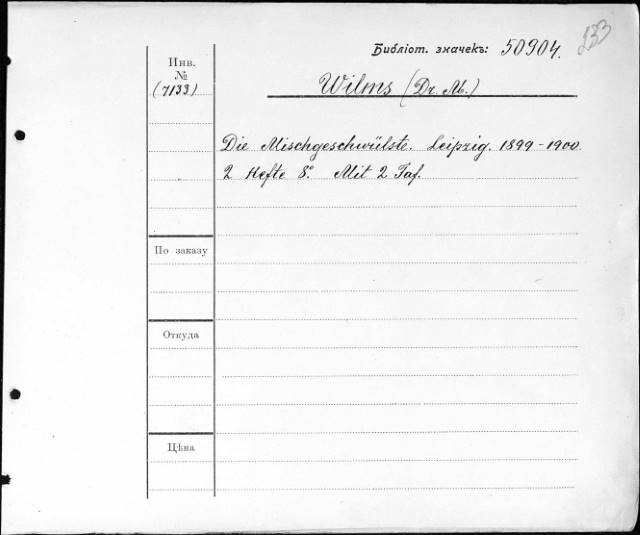 Библіот. значекъ: 50904.
233
Инв.
№
(7133)
Wilms (Dr. M.)
Die Mischgeschwülste. Leipzig. 1899-1900.
2 Hefte 8º. Mit 2 Taf.
По заказу
Откуда
Цѣна